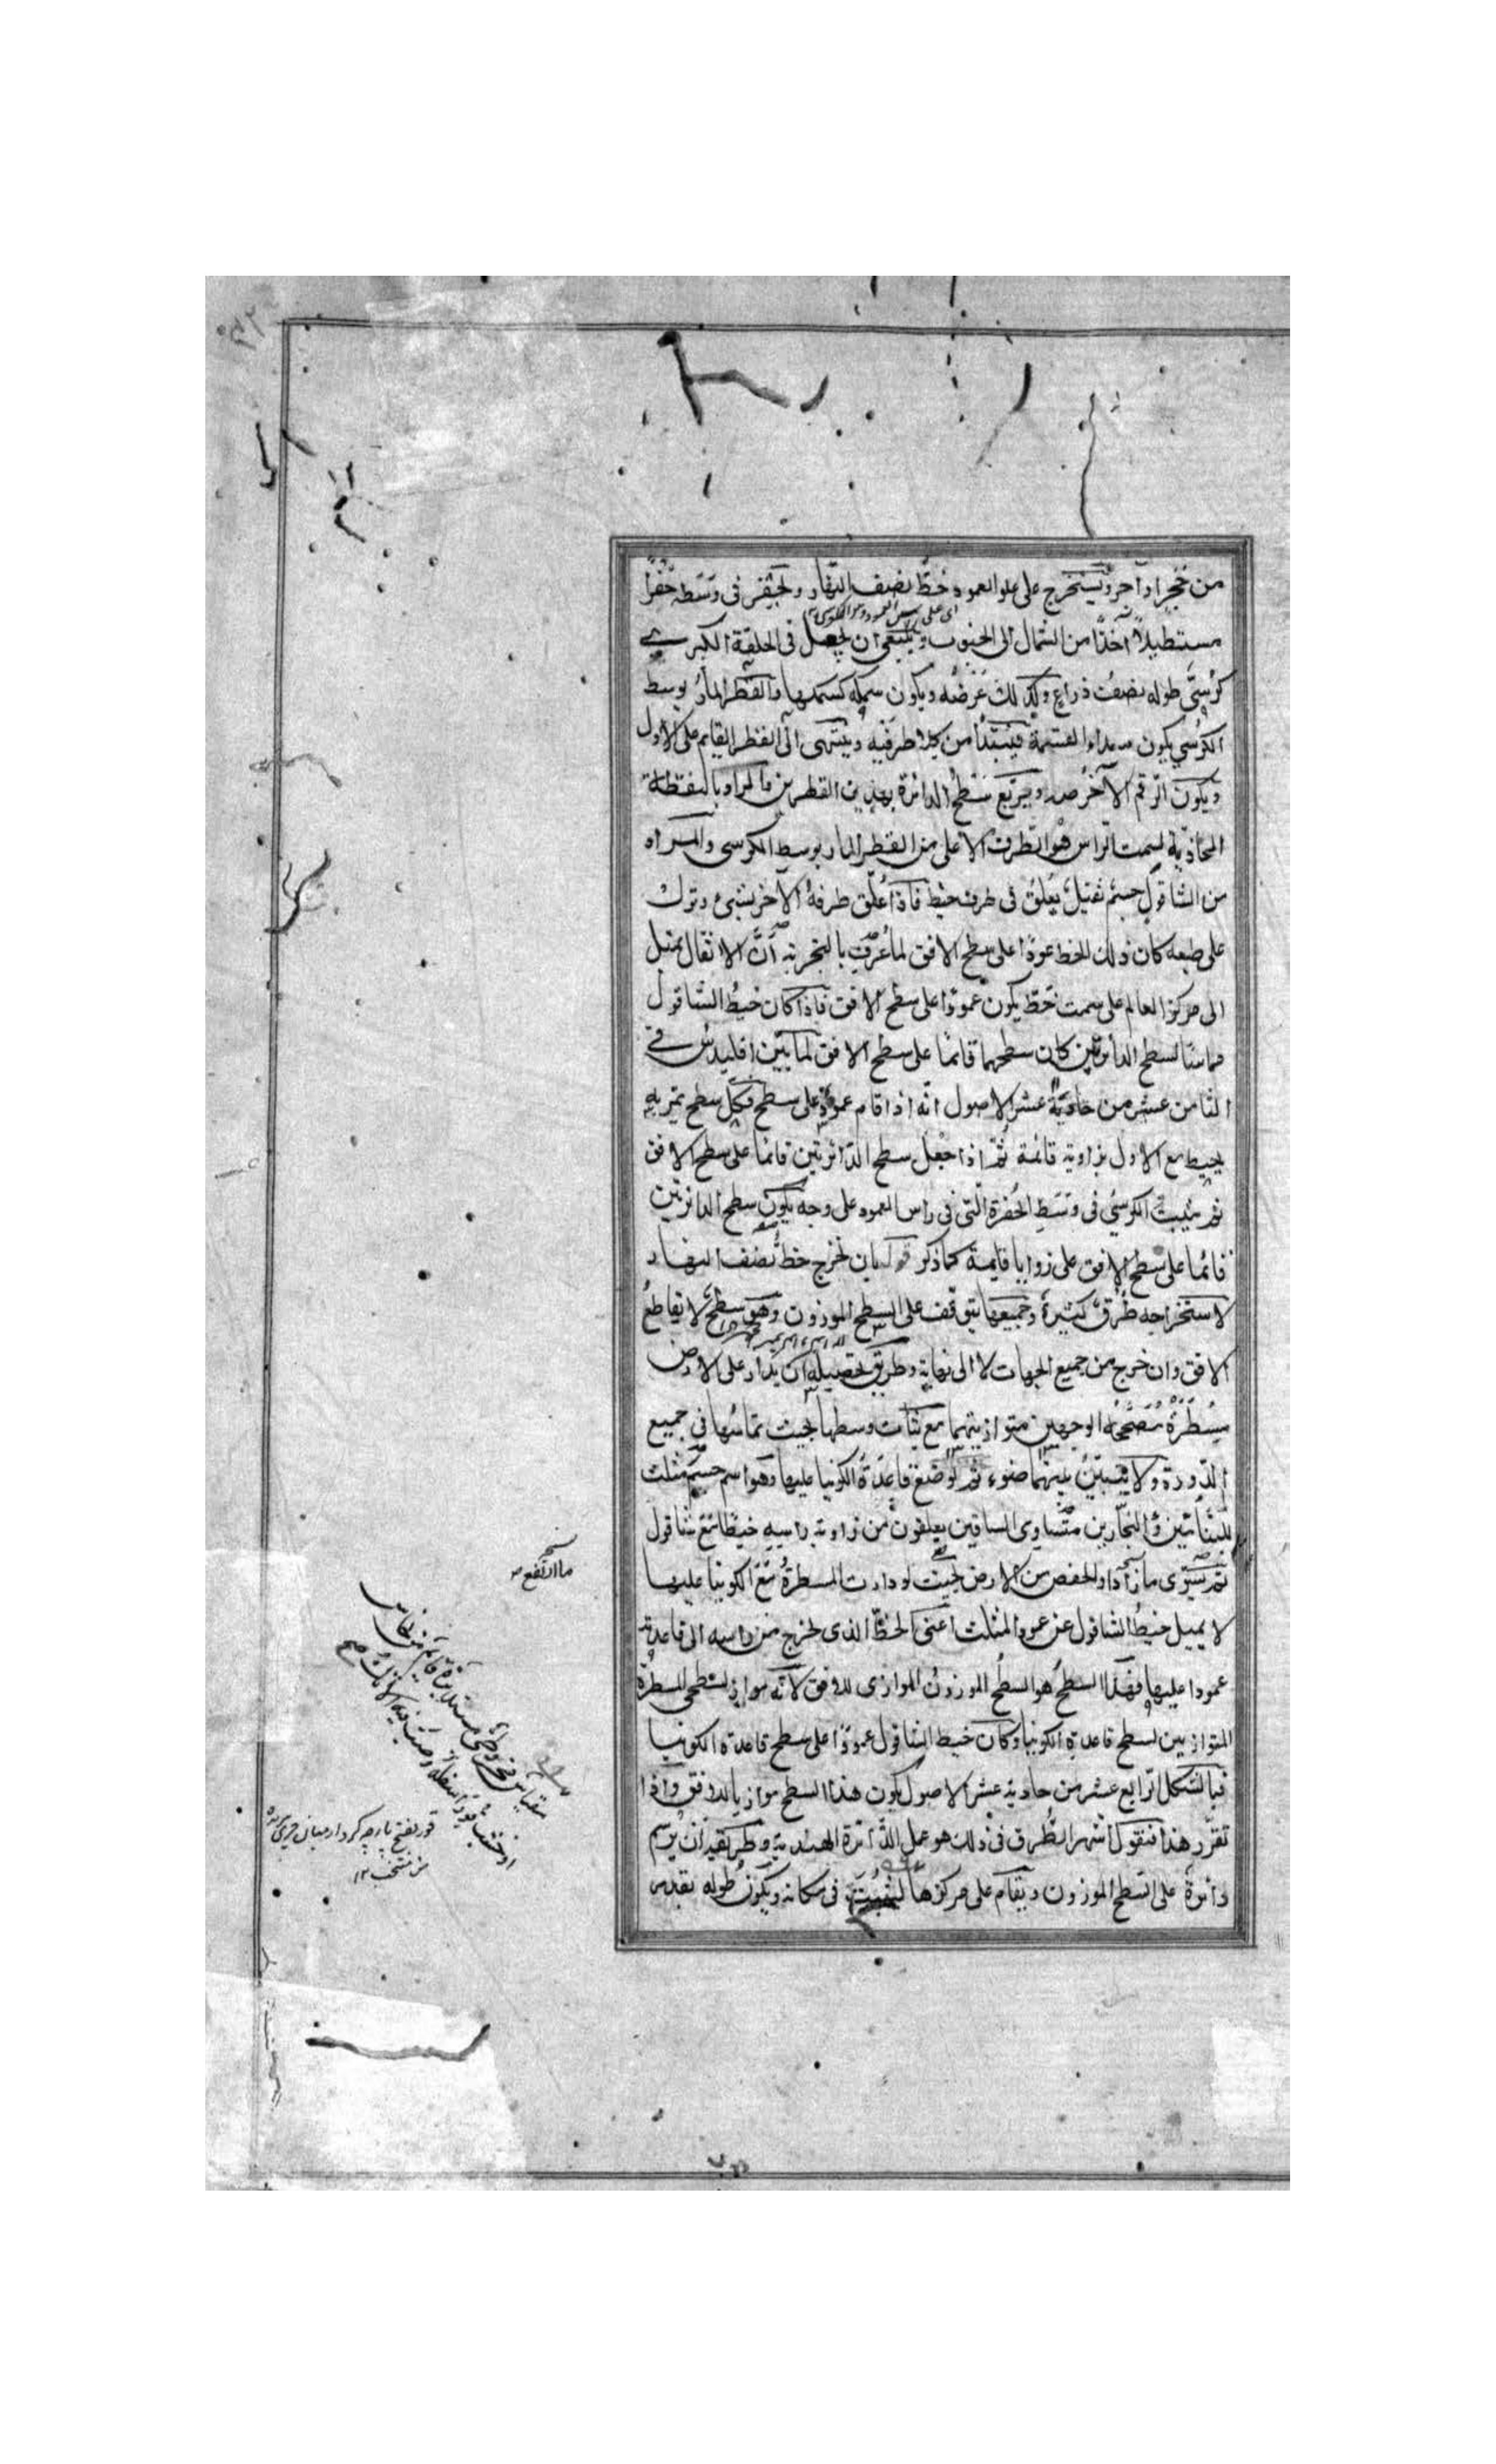 من حجر او آجر ويستخرج على علو العمود خط نصف النهار ويحفر فى وسطه حفرا
اى على راس العمود وهو الكرسى
مستطيلا آخذا من الشمال الى الجنوب وينبغى ان يجعل فى الحلقة الكبرى
كرسى طوله نصف ذراع وكذلك عرضه ويكون سمكه كسمكها والقطر المار بوسط
الكرسى يكون مبداء القسمة فيبتدأ من كلا طرفيه وينتهى الى القطر القايم على الاول
ويكون الرقم الآخر ص ويتربع سطح الدائرة بهذين القطرين والمراد بالنقطة
المحاذية لسمت الراس هو الطرف الاعلى من القطر المار بوسط الكرسى والمراد
من الشاقول جسم ثقيل يعلق فى طرف خيط فاذا علق طرفه الآخر بشئ وترك
على طبعه كان ذلك الخط عمودا على سطح الافق لما عرف بالتجربة ان الاثقال تميل
الى مركز العالم على سمت خط يكون عمودا على سطح الافق فاذا كان خيط الشاقول
مماسا لسطح الدائرتين كان سطحهما قائما على سطح الافق لما بين اقليدس فى
الثامن عشر من حادية عشر الاصول انه اذا قام عمود على سطح فكل سطح يمر به
يحيط مع الاول بزاوية قائمة ثم اذا جعل سطح الدائرتين قائما على سطح الافق
ثم يثبت الكرسى فى وسط الحفرة التى فى راس العمود على وجه يكون سطح الدائرتين
قائما على سطح الافق على زوايا قايمة كما ذكر قوله بان يخرج خط نصف النهار
لاستخراجه طرق كثيرة وجميعها يتوقف على السطح الموزون وهو سطح لا يقاطع
الافق وان خرج من جميع الجهات لا الى نهاية وطريق تحصيله ان يدار على الارض
مسطرة مصححة الوجهين متوازيتهما مع ثبات وسطها بحيث تماسها فى جميع
الدورة ولا يتبين بينهما ضوء ثم توضع قاعدة الكونيا عليها وهو اسم جسم مثلث
للبنائين والنجارين متساوى الساقين يعلقون من زاوية راسه خيطا مع شاقول
ثم يسوى ما زاد او انخفض من الارض بحيث لو دارت المسطرة مع الكونيا عليها
لا يميل خيط الشاقول عن عمود المثلث اعنى الخط الذى يخرج من راسه الى قاعدته
عمودا عليها فهذا السطح هو السطح الموزون الموازى للافق لانه مواز لسطحى المسطرة
المتوازيين لسطح قاعدة الكونيا وكان خيط الشاقول عمودا على سطح قاعدة الكونيا
فبالشكل الرابع عشر من حادية عشر الاصول يكون هذا السطح موازيا للافق واذا
تقرر هذا فنقول اشهر الطرق فى ذلك هو عمل الدائرة الهندية وطريقه ان يرسم
دائرة على السطح الموزون ويقام على مركزها ليثبت فى مكانه ويكون طوله بقدر
ما ارتفع
مقياس مخروطى مستدير قايم من نحاس
او خشب اسفله صح
قور بفتح پارچه گرد از ميان
من منتخب ١٢